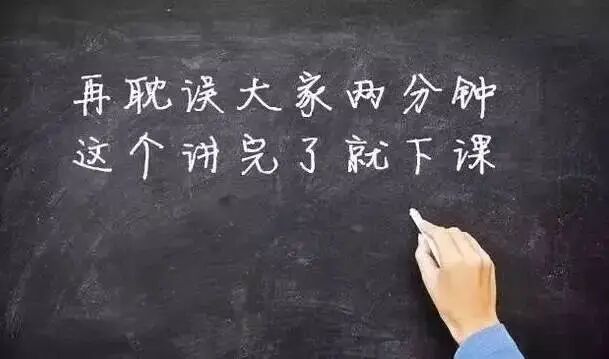 再耽误大家两分钟
这个讲完了就下课